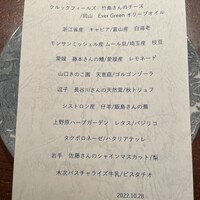 クルックフィールズ 竹島さんのチーズ
/岡山 Ever Green オリーブオイル
近江舎産 キャビア/富山産 白海老
モンサンミッシェル産 ムール貝/埼玉産 枝豆
愛媛 藤本さんの鱧/愛媛産 レモネード
山口きのこ園 天恵菇/ゴルゴンゾーラ
逗子 長谷川さんの天然茸/秋トリュフ
シストロン産 仔羊/飯島さんの菊
上野原ハーブガーデン レタス/バジリコ
タクポロネーゼ/ハタリアテッレ
岩手 佐藤さんのシャインマスカット/梨
木次パスチャライズ牛乳/ピスタチオ
2022.10.28